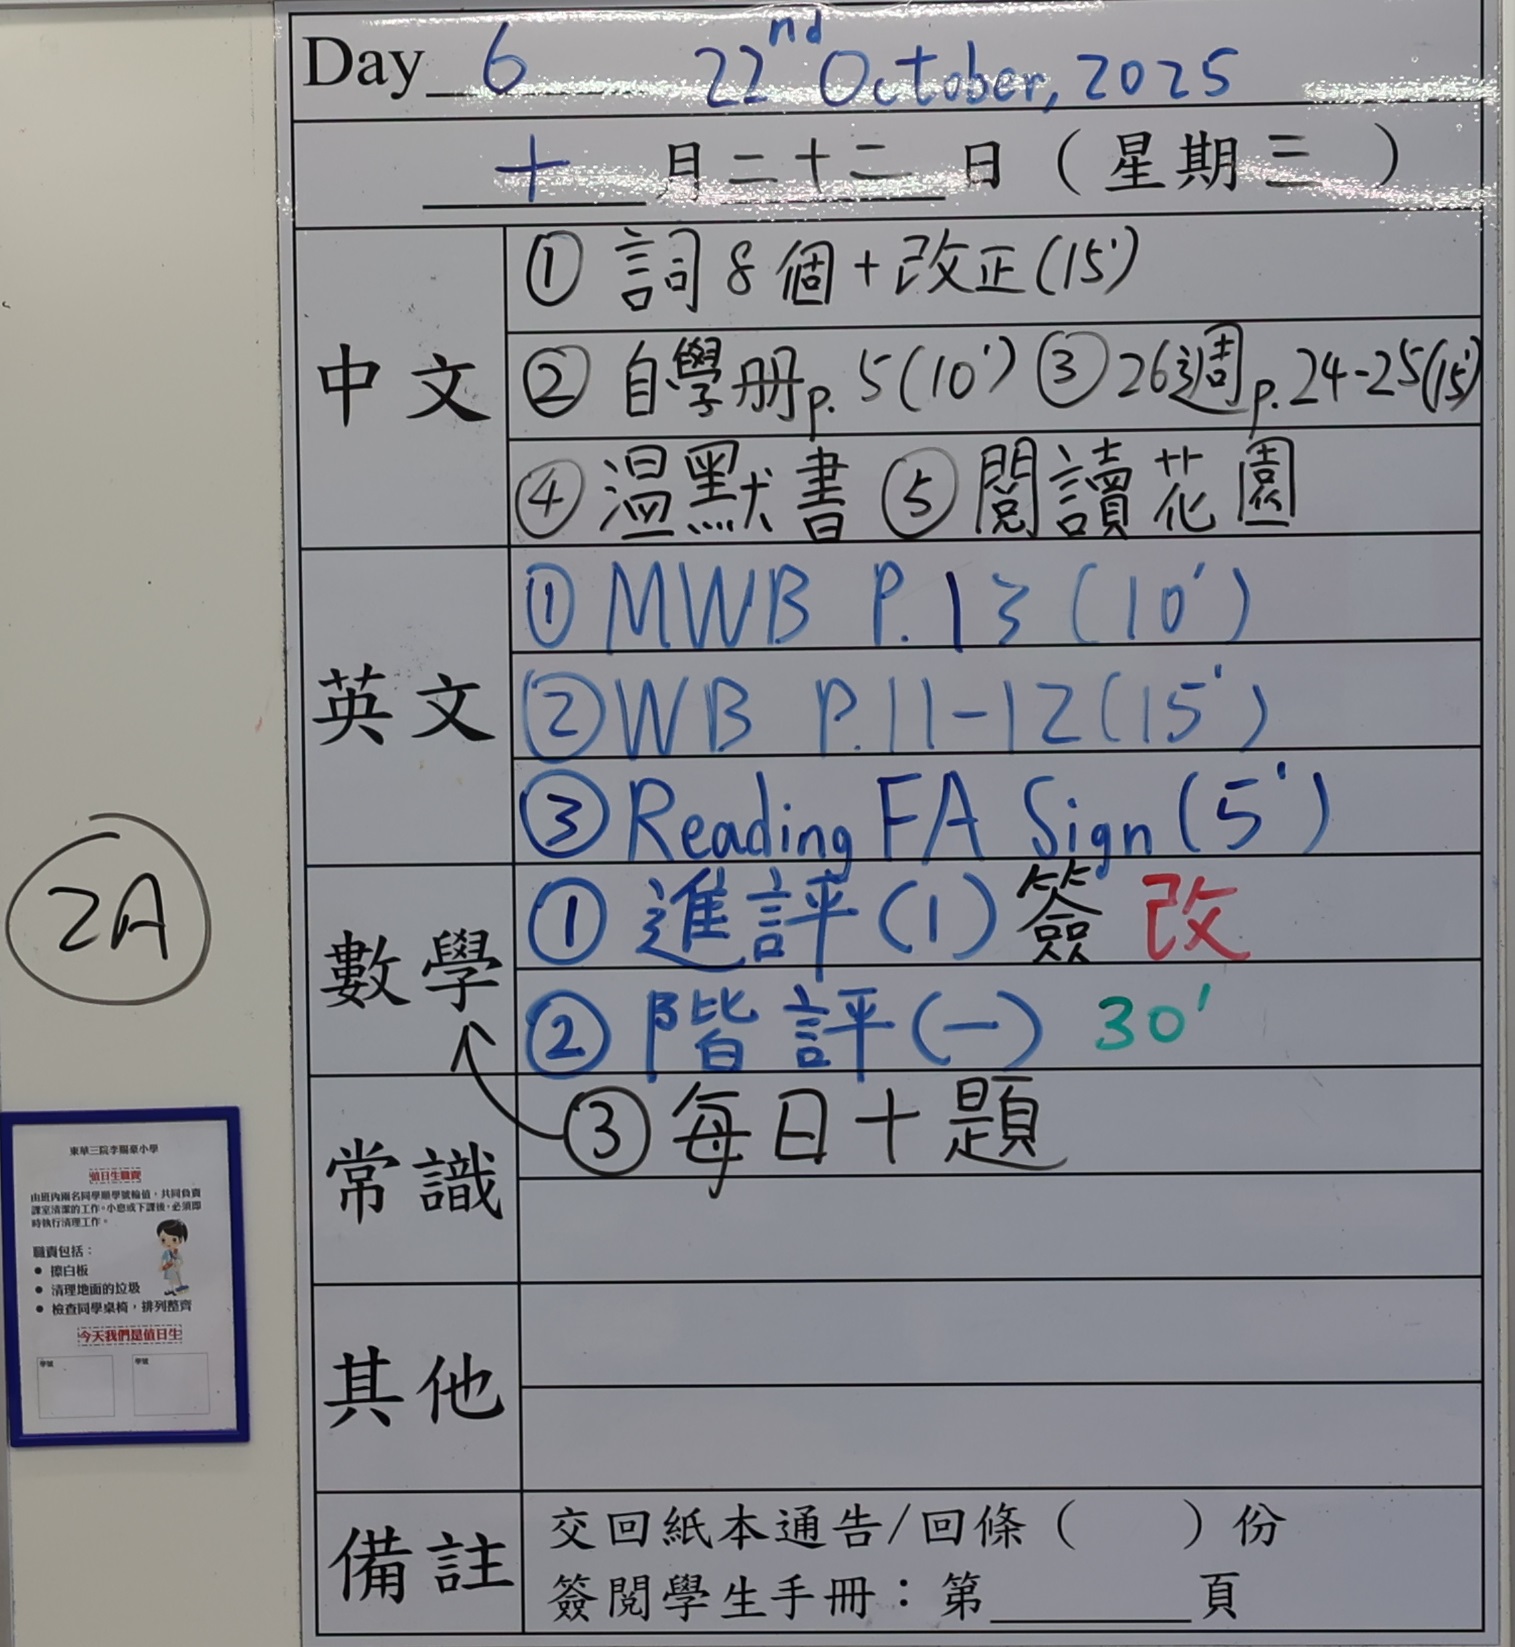 Day 6 22nd October, 2025
十月二十二日（星期三）
中文
① 詞8個+改正(15')
② 自學册p. 5(10') ③ 26週p. 24-25(15')
④ 溫默書 ⑤ 閱讀花園
英文
① MWB P.13 (10')
② WB P.11-12(15')
③ Reading FA Sign(5')
數學
① 進評(1)簽 改
② 階評(一) 30'
常識
③ 每日十題
其他
備註
交回紙本通告/回條（ ）份
簽閱學生手冊：第 頁
2A
東華三院李賜豪小學
值日生職責
由班內兩名同學順學號輪值，共同負責
課室清潔的工作。小息或下課後，必須即
時執行清理工作。
職責包括：
● 擦白板
● 清理地面的垃圾
● 檢查同學桌椅，排列整齊
今天我們是值日生
學號 學號